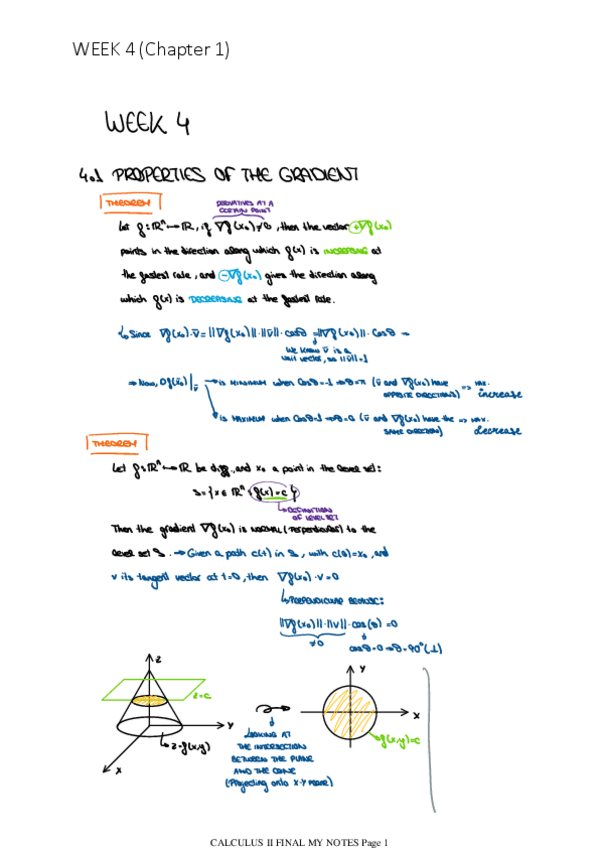 WEEK 4 (Chapter 1)
WEEK 4
4.1 PROPERTIES OF THE GRADIENT
THEOREM
DERIVATIVES AT A
CERTAIN POINT
Let f: ℝⁿ → ℝ, if ∇f(x₀)≠0, then the vector +∇f(x₀)
points in the direction along which f(x) is INCREASING at
the fastest rate, and -∇f(x₀) gives the direction along
which f(x) is DECREASING at the fastest rate.
↳ Since ∇f(x₀)·v̄ = ||∇f(x₀)||·||v̄||·cosθ = ||∇f(x₀)||·cosθ →
We know v̄ is a
unit vector, so ||v̄||=1
→ Now, Df(x̄₀)|v̄ → is MINIMUM when cosθ=-1 → θ=π (v̄ and ∇f(x₀) have => MAX.
OPPOSITE DIRECTIONS) increase
is MAXIMUM when cosθ=1 → θ=0 (v̄ and ∇f(x₀) have the => MAX.
SAME DIRECTION) decrease
THEOREM
Let f: ℝⁿ → ℝ be diff. and x₀ a point in the level set:
S = {x ∈ ℝⁿ : f(x) = c}
↳ DEFINITION
OF LEVEL SET
Then the gradient ∇f(x₀) is NORMAL (perpendicular) to the
level set S. → Given a path c(t) in S, with c(0)=x₀, and
v its tangent vector at t=0, then ∇f(x₀)·v=0
↳ PERPENDICULAR BECAUSE:
||∇f(x₀)||·||v||·cos(θ)=0
≠0
cosθ=0 → θ=90° (⊥)
z
z=c
y
x
↳ z=f(x,y)
LOOKING AT
THE INTERSECTION
BETWEEN THE PLANE
AND THE CONE
(Projecting onto x-y plane)
y
x
f(x,y)=c
CALCULUS II FINAL MY NOTES Page 1